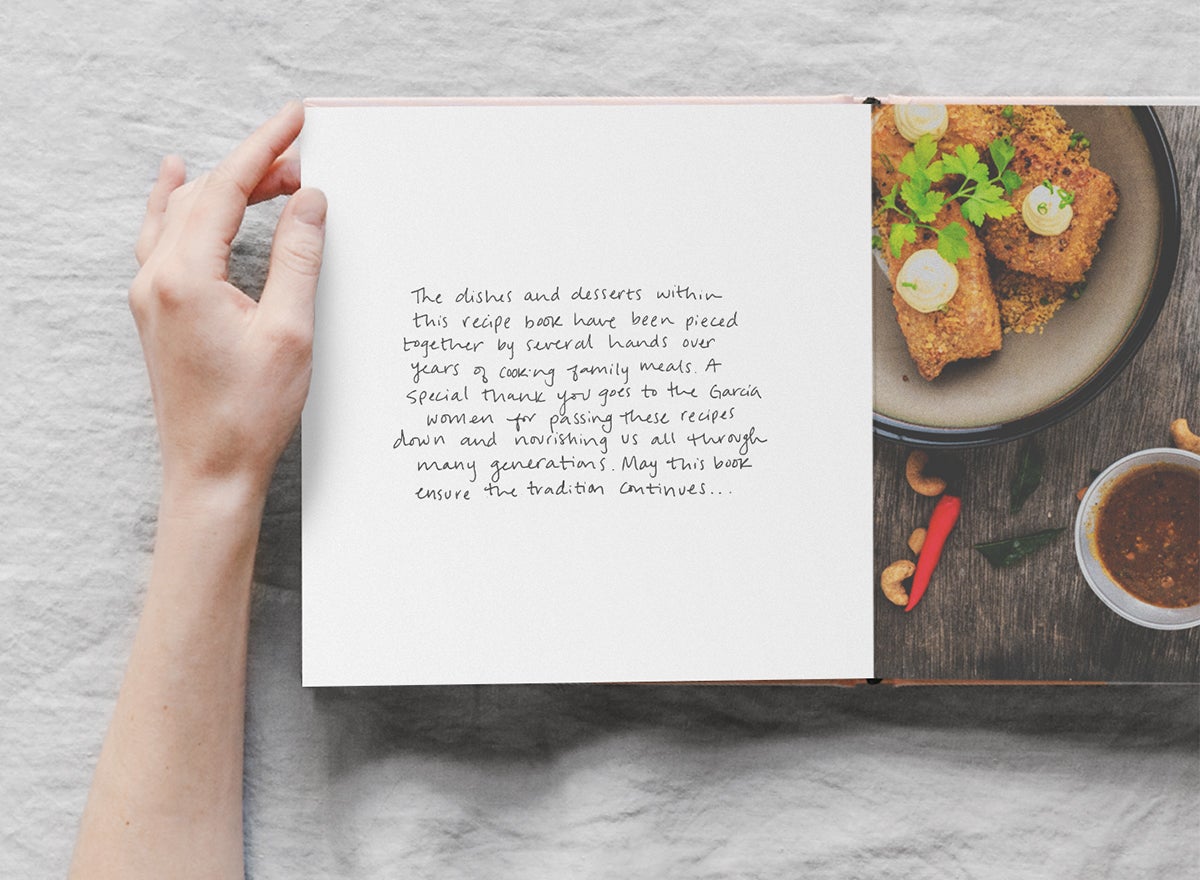 The dishes and desserts within
this recipe book have been pieced
together by several hands over
years of cooking family meals. A
special thank you goes to the Garcia
women for passing these recipes
down and nourishing us all through
many generations. May this book
ensure the tradition continues...